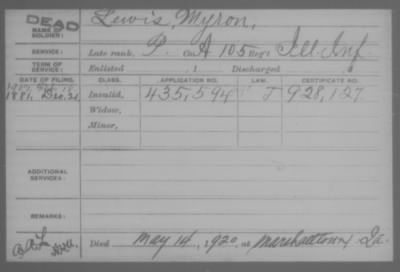 DEAD
NAME OF SOLDIER: Lewis, Myron,
SERVICE: Late rank, P. Co. A 105 Reg't Ill. Inf.
TERM OF SERVICE: Enlisted , 1 Discharged
DATE OF FILING. CLASS. APPLICATION NO. LAW. CERTIFICATE NO.
1881, Dec. 21 Invalid, 435,594 J 928,127
Widow,
Minor,
ADDITIONAL SERVICES:
REMARKS:
Died May 14, 1920, at Marshalltown, Ia.